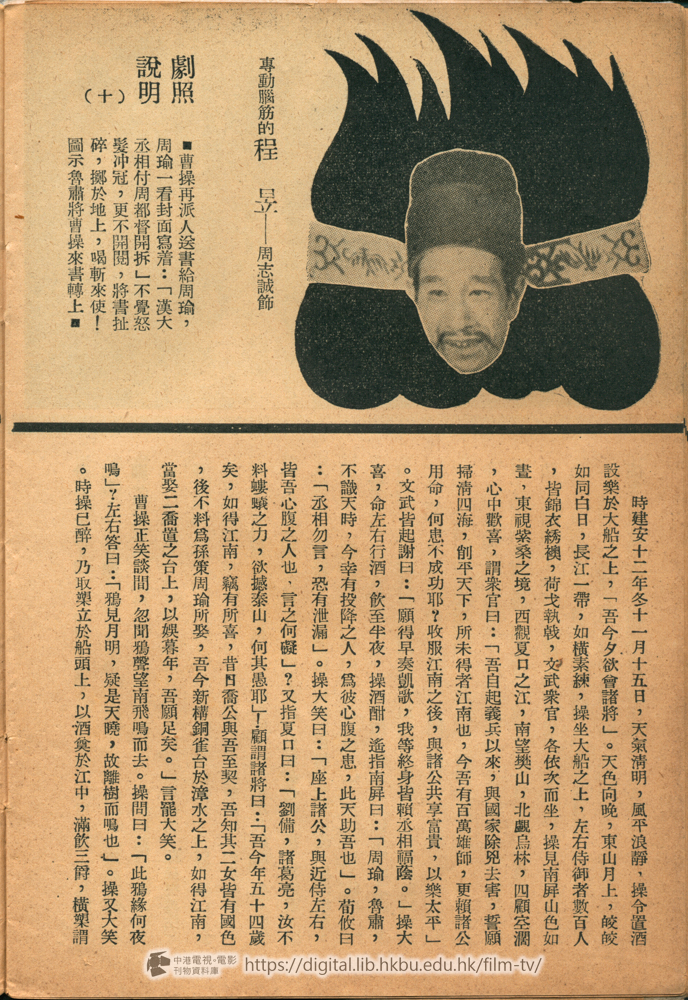 專動腦筋的程昱——周志誠飾
劇照
說明
（十）
■曹操再派人送書給周瑜，
周瑜一看封面寫着：「漢大
丞相付周都督開拆」不覺怒
髮沖冠，更不開閱，將書扯
碎，擲於地上，喝斬來使！
圖示魯肅將曹操來書轉上■
時建安十二年冬十一月十五日，天氣清明，風平浪靜，操令置酒
設樂於大船之上，「吾今夕欲會諸將」。天色向晚，東山月上，皎皎
如同白日，長江一帶，如橫素練，操坐大船之上，左右侍御者數百人
，皆錦衣綉襖，荷戈執戟，文武衆官，各依次而坐，操見南屏山色如
畫，東視紫桑之境，西觀夏口之江，南望樊山，北覷烏林，四顧空濶
，心中歡喜，謂衆官曰：「吾自起義兵以來，與國家除兇去害，誓願
掃清四海，創平天下，所未得者江南也，今吾有百萬雄師，更賴諸公
用命，何患不成功耶？收服江南之後，與諸公共享富貴，以樂太平」
。文武皆起謝曰：「願得早奏凱歌，我等終身皆賴丞相福蔭。」操大
喜，命左右行酒，飲至半夜，操酒酣，遙指南屏曰：「周瑜，魯肅，
不識天時，今幸有投降之人，爲彼心腹之患，此天助吾也」。荀攸曰
：「丞相勿言，恐有泄漏」。操大笑曰：「座上諸公，與近侍左右，
皆吾心腹之人也，言之何礙」？又指夏口曰：「劉備，諸葛亮，汝不
料螻蟻之力，欲撼泰山，何其愚耶」！顧謂諸將曰：「吾今年五十四歲
矣，如得江南，竊有所喜，昔日喬公與吾至契，吾知其二女皆有國色
，後不料爲孫策周瑜所娶，吾今新構銅雀台於漳水之上，如得江南，
當娶二喬置之台上，以娛暮年，吾願足矣。」言罷大笑。
曹操正笑談間，忽聞鴉聲望南飛鳴而去。操問曰：「此鴉緣何夜
鳴」？左右答曰：「鴉見月明，疑是天曉，故離樹而鳴也」。操又大笑
。時操已醉，乃取槊立於船頭上，以酒奠於江中，滿飲三爵，橫槊謂
中港電視•電影
刊物資料庫
https://digital.lib.hkbu.edu.hk/film-tv/